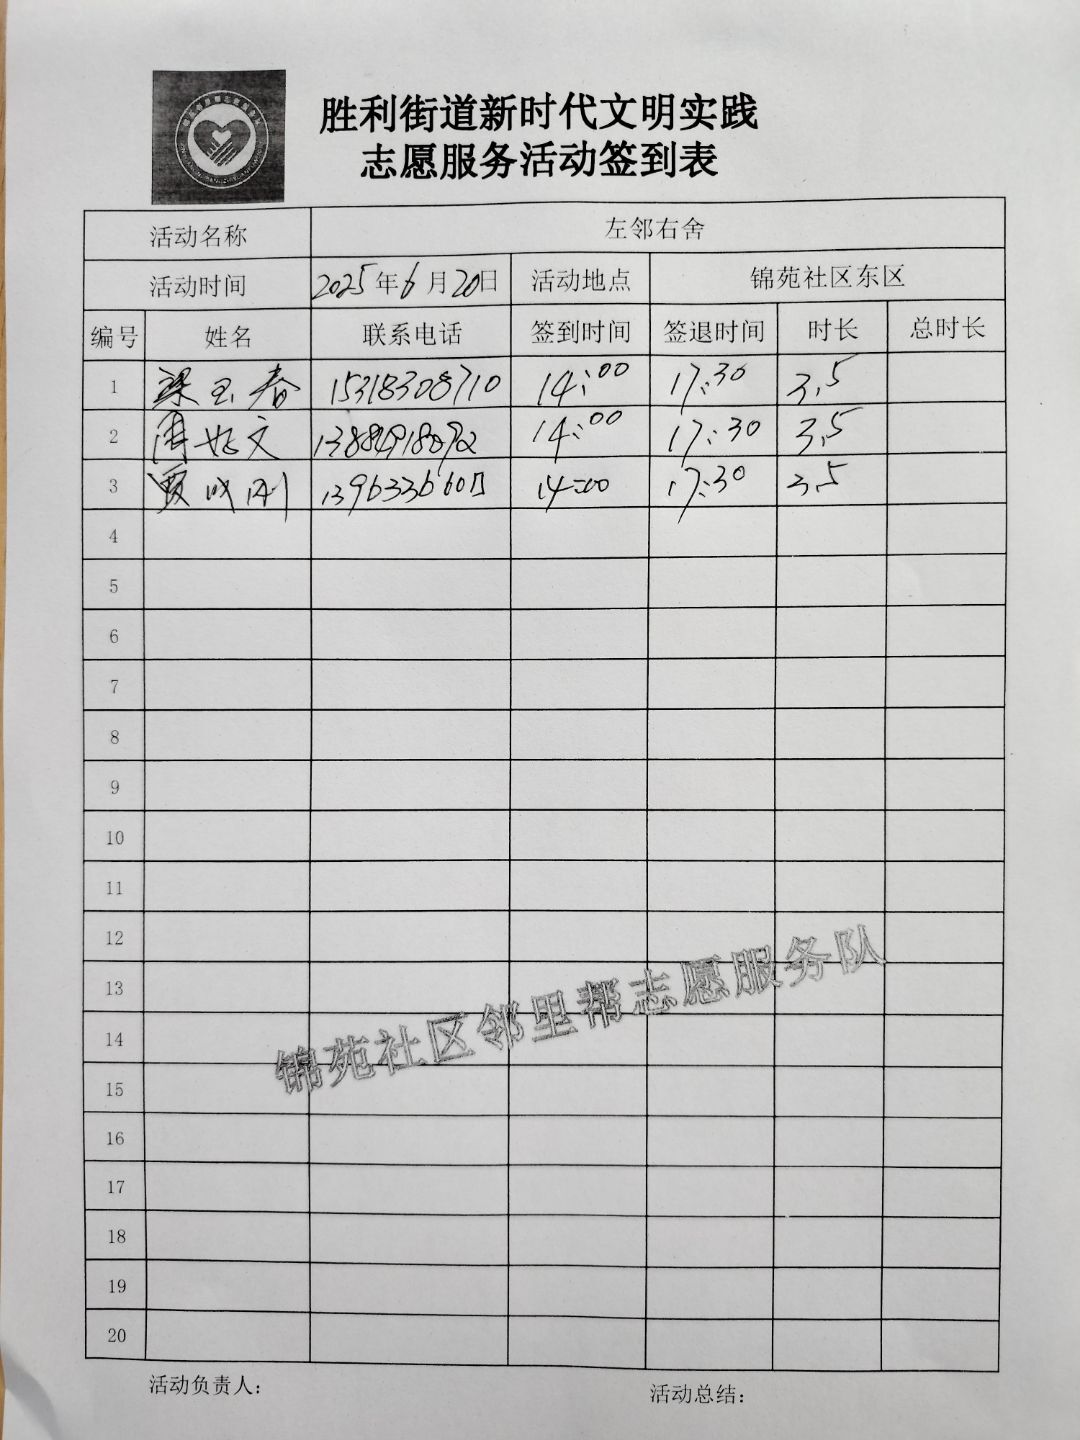 胜利街道新时代文明实践
志愿服务活动签到表
活动名称 左邻右舍
活动时间 2025年6月20日 活动地点 锦苑社区东区
编号 姓名 联系电话 签到时间 签退时间 时长 总时长
1 梁玉春 15318308710 14:00 17:30 3.5
2 周 文 14:00 17:30 3.5
3 贾成刚 14:00 17:30 3.5
4
5
6
7
8
9
10
11
12
13
14
15
16
17
18
19
20
锦苑社区邻里帮志愿服务队
活动负责人: 活动总结: